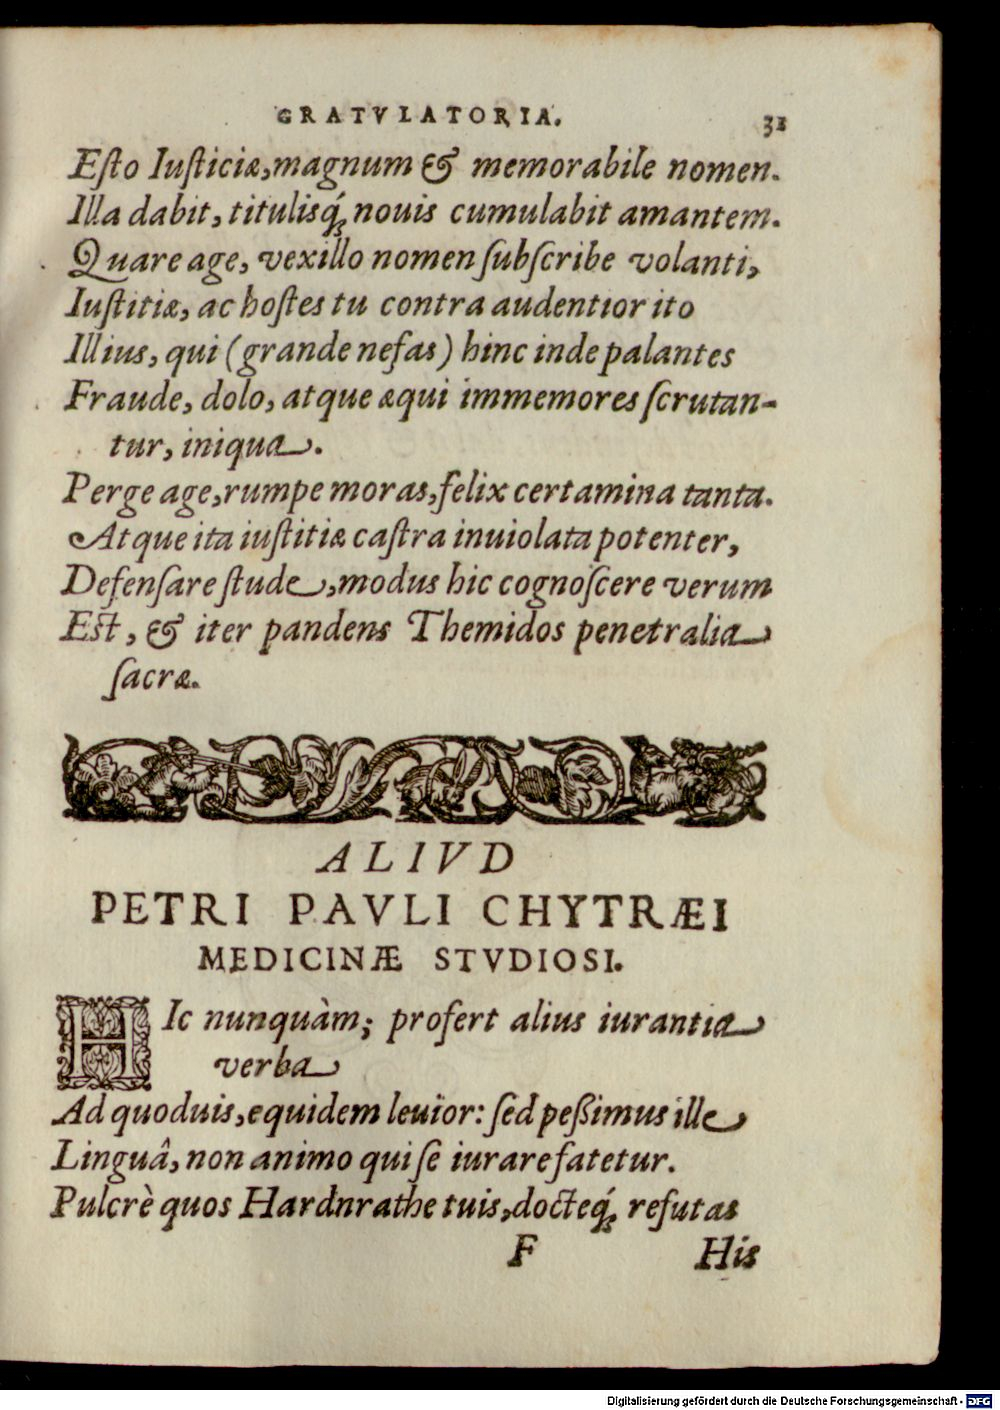 GRATVLATORIA. 31
Eſto Iuſticiæ, magnum & memorabile nomen.
Illa dabit, titulisq́ꝫ nouis cumulabit amantem.
Quare age, vexillo nomen ſubſcribe volanti,
Iuſtitiæ, ac hoſtes tu contra audentior ito
Illius, qui (grande nefas) hinc inde palantes
Fraude, dolo, atque æqui immemores ſcrutan-
tur, iniqua.
Perge age, rumpe moras, felix certamina tanta.
Atque ita iuſtitiæ caſtra inuiolata potenter,
Defenſare ſtude, modus hic cognoſcere verum
Eſt, & iter pandens Themidos penetralia
ſacræ.
ALIVD
PETRI PAVLI CHYTRÆI
MEDICINÆ STVDIOSI.
HIc nunquàm; profert alius iurantia
verba
Ad quoduis, equidem leuïor: ſed peßimus ille
Linguâ, non animo qui ſe iurare fatetur.
Pulcrè quos Hardnrathe tuis, docteq́ꝫ refutas
F His
Digitalisierung gefördert durch die Deutsche Forschungsgemeinschaft - DFG